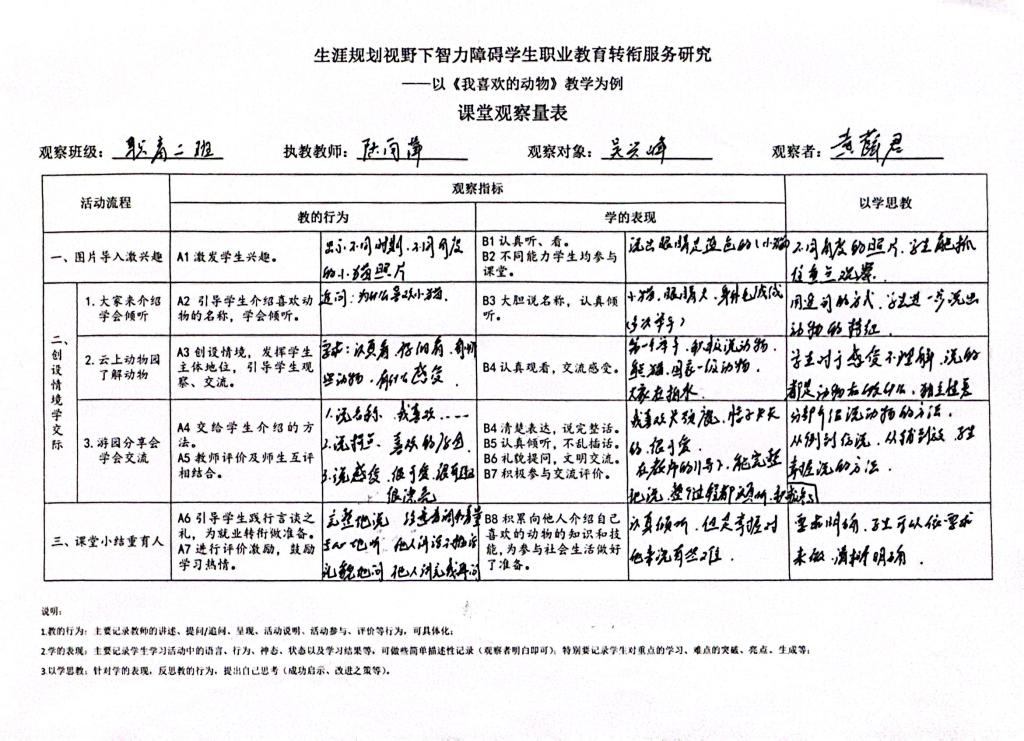 生涯规划视野下智力障碍学生职业教育转衔服务研究
——以《我喜欢的动物》教学为例
课堂观察量表
观察班级：职高二班 执教教师：陈雨萍 观察对象：吴兴峰 观察者：黄 君
活动流程
观察指标
以学思教
教的行为
学的表现
一、图片导入激兴趣
A1 激发学生兴趣。
出示不同时期、不同角度
的小猫照片
B1 认真听、看。
B2 不同能力学生均参与
课堂。
说出眼睛是蓝色的（小猫
不同角度的照片，学生能抓
住重点观察.
二、创设情境学交际
1. 大家来介绍
学会倾听
A2 引导学生介绍喜欢动
物的名称，学会倾听。
追问：为什么喜欢小猫.
B3 大胆说名称，认真倾
听。
小猫，眼睛大，身体毛
（多次举手）
用追问的方式，学生进一步说出
动物的特征.
2. 云上动物园
了解动物
A3 创设情境，发挥学生
主体地位，引导学生观
察、交流。
要求：认真看，仔细看，有哪
些动物，有什么感受.
B4 认真观看，交流感受。
第一个举手，积极说动物，
熊猫，国家一级动物.
大象在拍水.
学生对于感受不理解，说的
都是动物在做什么，
3. 游园分享会
学会交流
A4 交给学生介绍的方
法。
A5 教师评价及师生互评
相结合。
1. 说名称 我喜欢……
2. 说特点 喜欢的原因
3. 说感受 很可爱
很漂亮
B4 清楚表达，说完整话。
B5 认真倾听，不乱插话。
B6 礼貌提问，文明交流。
B7 积极参与交流评价。
我喜欢长颈鹿，脖子长长
的，很可爱.
在教师的引导下，能完整
地说，整个过程都认真听
分部介绍说动物的方法.
从例到仿说，从扶到放，学生
掌握说的方法.
三、课堂小结重育人
A6 引导学生践行言谈之
礼，为就业转衔做准备。
A7 进行评价激励，鼓励
学习热情。
完整地说
专心地听 他人讲话不插话
礼貌地问 他人讲完我再问
B8 积累向他人介绍自己
喜欢的动物的知识和技
能，为参与社会生活做好
了准备。
认真倾听，但是掌握对
他来说有些难.
要求明确，学生可以依要求
来做，清晰明确.
说明：
1.教的行为：主要记录教师的讲述、提问/追问、呈现、活动说明、活动参与、评价等行为，可具体化；
2.学的表现：主要记录学生学习活动中的语言、行为、神态、状态以及学习结果等，可做些简单描述性记录（观察者明白即可）；特别要记录学生对重点的学习、难点的突破、亮点、生成等；
3.以学思教：针对学的表现，反思教的行为，提出自己思考（成功启示、改进之策等）。